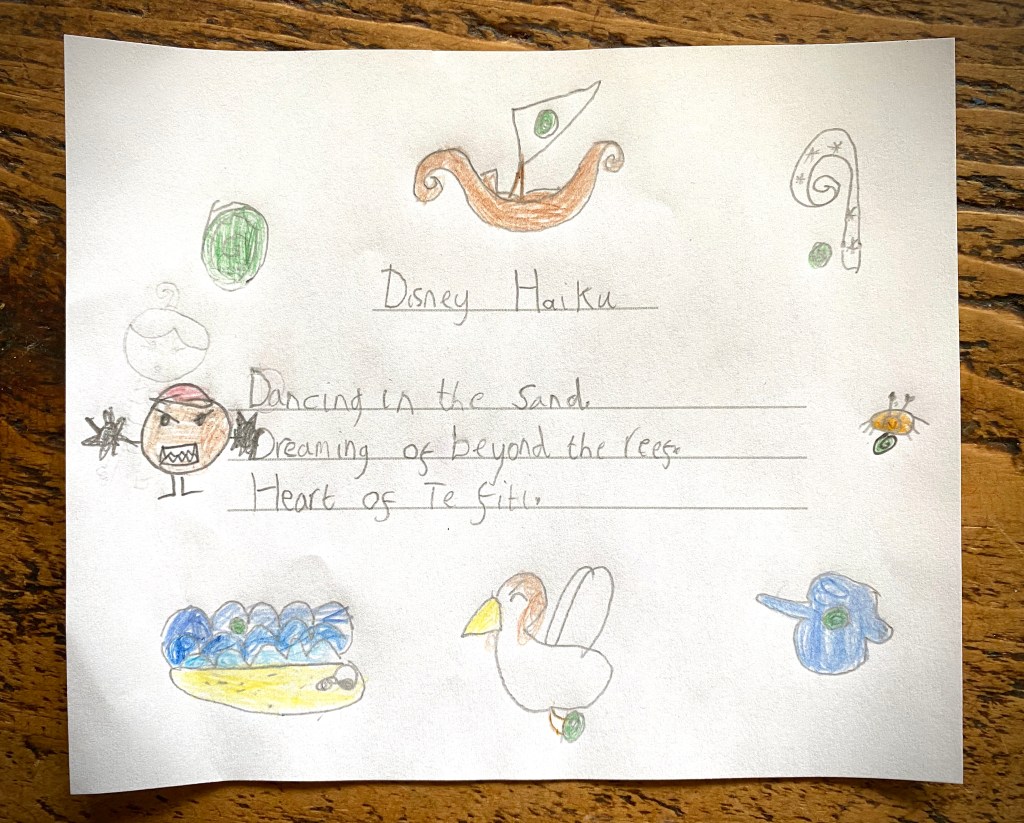 Disney Haiku
Dancing in the sand.
Dreaming of beyond the reef.
Heart of Te fiti.